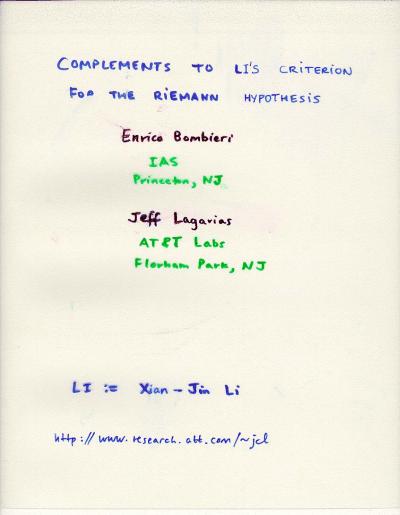 COMPLEMENTS TO LI'S CRITERION
FOR THE RIEMANN HYPOTHESIS
Enrico Bombieri
IAS
Princeton, NJ
Jeff Lagarias
AT&T Labs
Florham Park, NJ
LI := Xian-Jin Li
http://www.research.att.com/~jcl